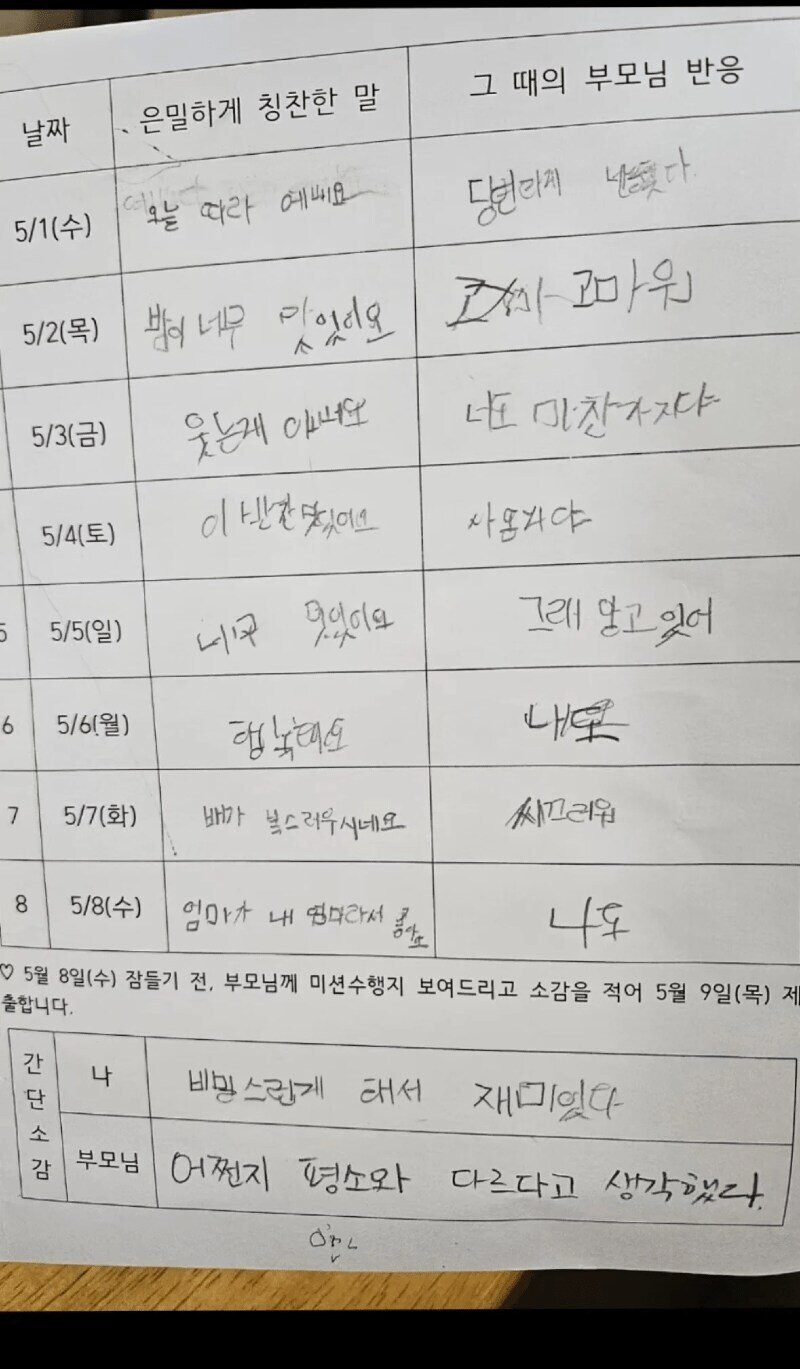 날짜 은밀하게 칭찬한 말 그 때의 부모님 반응
5/1(수) 오늘 따라 예뻐요
5/2(목) 밥이 너무 맛있어요 고마워
5/3(금) 웃는게 너도 마찬가지다
5/4(토) 이 반찬 맛있어요
5 5/5(일) 그래 알고 있어
6 5/6(월) 내도
7 5/7(화) 배가 복스러우시네요 씨끄러워
8 5/8(수) 엄마가 내 엄마라서 좋아요 나도
♡ 5월 8일(수) 잠들기 전, 부모님께 미션수행지 보여드리고 소감을 적어 5월 9일(목) 제
출합니다.
간단소감
나 비밀스런게 태서 재미있다
부모님 어쩐지 평소와 다르다고 생각했다.